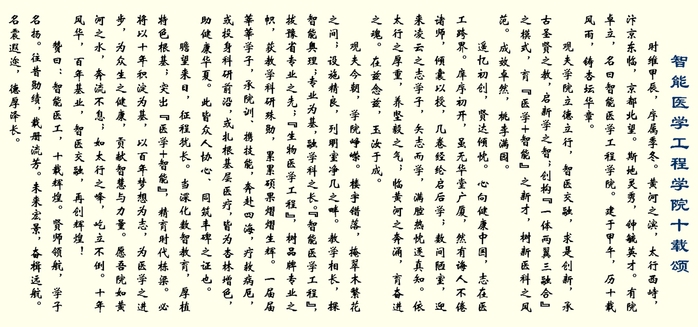 智能医学工程学院十载颂
时维甲辰，序属季冬。黄河之滨，太行西峙，
汴京东临，京都北望。斯地灵秀，钟毓英才。有院
卓立，名曰智能医学工程学院。建于甲午，历十载
风雨，铸杏坛华章。
观夫学院立德立行，智医交融，求是创新，承
古圣贤之教，启新学之智；创构『一体两翼三融合』
之模式，育『医学+智能』之新才，树新医科之风
范。成效卓然，桃李满园。
遥忆初创，贤达倾忱。心向健康中国，志在医
工跨界。庠序初开，虽无华堂广厦，然有诲人不倦
诸师，倾囊以授，几卷经纶启后学；数间陋室，迎
来凌云之志学子，矢志而学，满腔热忱逐真知。依
太行之厚重，养坚毅之气；临黄河之奔涌，育奋进
之魂。在兹念兹，玉汝于成。
观夫今朝，学院峥嵘。楼宇错落，掩翠木繁花
之间；设施精良，列明室净几之畔。教学相长，探
智能奥理；专业为基，融学科之长。『智能医学工程』，
拔豫省专业之先；『生物医学工程』，树品牌专业之
帜，获教学科研殊勋，累累硕果熠熠生辉。一届届
莘莘学子，承院训、携技能，奔赴四海，疗救病厄，
或投身科研前沿，或扎根基层医疗，皆为杏林增色，
助健康华夏。此皆众人协心、同筑丰碑之证也。
瞻望来日，征程犹长。当深化数智教育，厚植
特色根基；突出『医学+智能』，精育时代栋梁。必
将以十年积淀为基，以百年梦想为志，为医学之进
步，为众生之健康，贡献智慧与力量。愿吾院如黄
河之水，奔流不息；如太行之峰，屹立不倒。十年
风华，百年基业，智医交融，再创辉煌！
赞曰：智能医工，十载辉煌。贤师领航，学子
名扬。往昔勋绩，载册流芳。未来宏景，奋楫远航。
名震遐迩，德厚泽长。